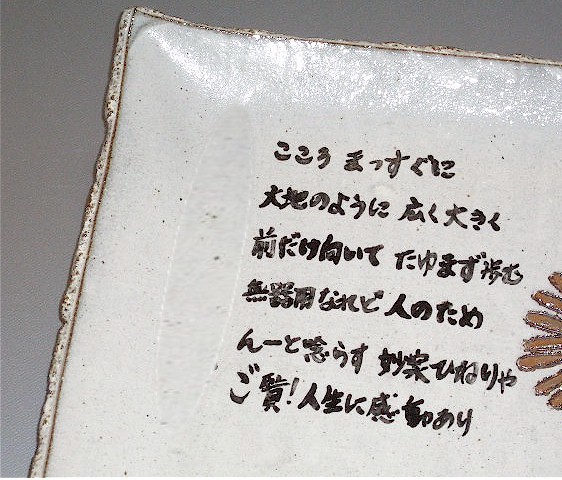 こころ まっすぐに
大地のように 広く大きく
前だけ向いて たゆまず歩む
無器用なれど 人のため
んーと唸らす 妙案ひねりや
ご覧！人生に感動あり